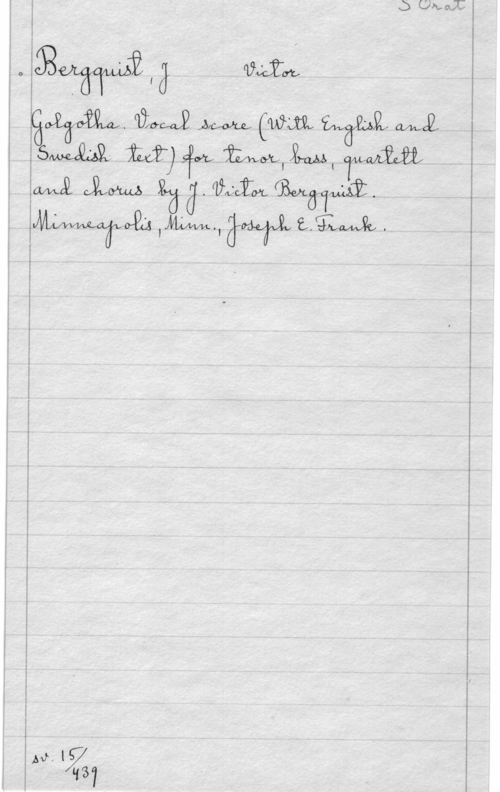 S Orat
Bergquist, J Victor
Golgotha. Vocal score (With English and
Swedish text) for tenor, bass, quartett
and chorus by J. Victor Bergquist.
Minneapolis, Minn., Joseph E. Frank.
sv. 15/439